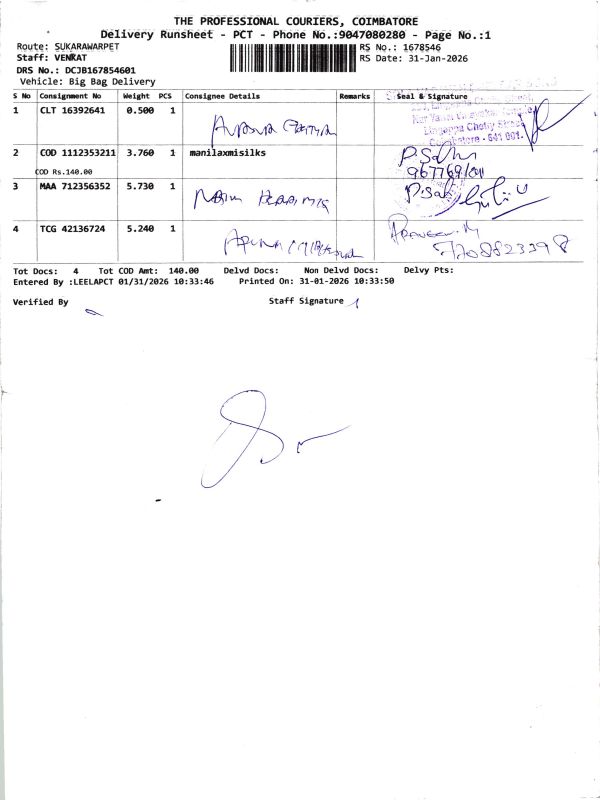 THE PROFESSIONAL COURIERS, COIMBATORE
Delivery Runsheet - PCT - Phone No.:9047080280 - Page No.:1
Route: SUKARAWARPET RS No.: 1678546
Staff: VENKAT RS Date: 31-Jan-2026
DRS No.: DCJB167854601
Vehicle: Big Bag Delivery
S No Consignment No Weight PCS Consignee Details Remarks Seal & Signature
1 CLT 16392641 0.500 1
Lingappa Chetty Street
Coimbatore - 641 001.
2 COD 1112353211 3.760 1 manilaxmisilks
COD Rs.140.00
3 MAA 712356352 5.730 1
4 TCG 42136724 5.240 1 Praveen.M
Tot Docs: 4 Tot COD Amt: 140.00 Delvd Docs: Non Delvd Docs: Delvy Pts:
Entered By :LEELAPCT 01/31/2026 10:33:46 Printed On: 31-01-2026 10:33:50
Verified By Staff Signature